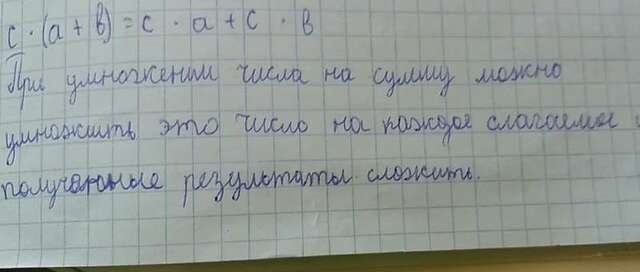 с · (а + в) = с · а + с · в
При умножении числа на сумму можно
умножить это число на каждое слагаемое и
полученные результаты сложить.